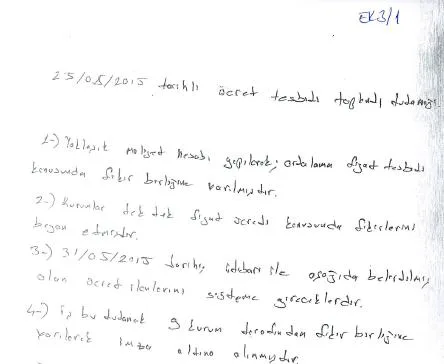 EK3/1
25/05/2015 tarihli ücret tesbidi toplandı tutanağı.
1-) Yaklaşık maliyet hesabı yapılarak; ortalama fiyat tesbidi
konusunda fikir birliğine varılmıştır.
2-) Kurumlar tek tek fiyat ücreti konusunda fikirlerini
beyan etmiştir.
3-) 31/05/2015 tarihi itibari ile aşağıda belirtilmiş
olan ücretlerini sisteme gireceklerdir.
4-) iş bu tutanak 9 kurum tarafından fikir birliğine
varilerek imza altına alınmıştır.